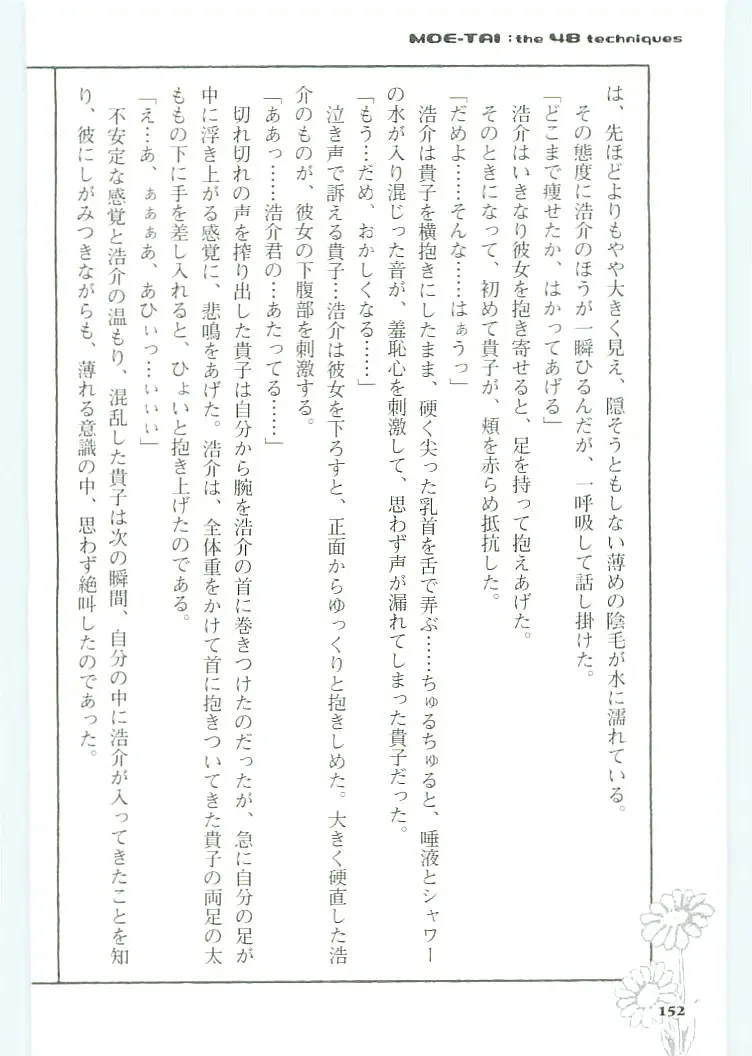 MOE-TAI : the 48 techniques
は、先ほどよりもやや大きく見え、隠そうともしない薄めの陰毛が水に濡れている。
その態度に浩介のほうが一瞬ひるんだが、一呼吸して話し掛けた。
「どこまで痩せたか、はかってあげる」
浩介はいきなり彼女を抱き寄せると、足を持って抱えあげた。
そのときになって、初めて貴子が、頬を赤らめ抵抗した。
「だめよ……そんな……はぁうっ」
浩介は貴子を横抱きにしたまま、硬く尖った乳首を舌で弄ぶ……ちゅるちゅると、唾液とシャワー
の水が入り混じった音が、羞恥心を刺激して、思わず声が漏れてしまった貴子だった。
「もう…だめ、おかしくなる……」
泣き声で訴える貴子…浩介は彼女を下ろすと、正面からゆっくりと抱きしめた。大きく硬直した浩
介のものが、彼女の下腹部を刺激する。
「ああっ……浩介君の…あたってる……」
切れ切れの声を搾り出した貴子は自分から腕を浩介の首に巻きつけたのだったが、急に自分の足が
中に浮き上がる感覚に、悲鳴をあげた。浩介は、全体重をかけて首に抱きついてきた貴子の両足の太
ももの下に手を差し入れると、ひょいと抱き上げたのである。
「え…あ、ぁぁぁあ、あひぃっ…ぃぃぃ」
不安定な感覚と浩介の温もり、混乱した貴子は次の瞬間、自分の中に浩介が入ってきたことを知
り、彼にしがみつきながらも、薄れる意識の中、思わず絶叫したのであった。
152